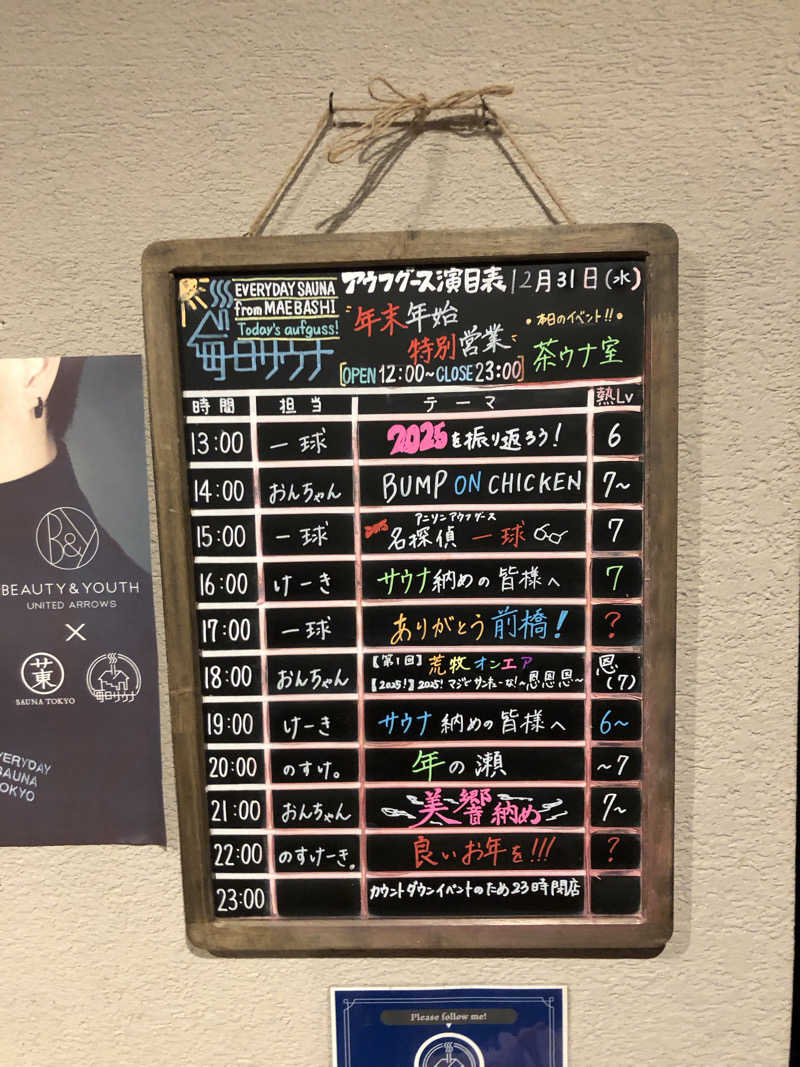 EVERYDAY SAUNA
from MAEBASHI
Today's aufguss!
毎日サウナ
アウフグース演目表 12月31日(水)
年末年始
特別営業
OPEN 12:00~CLOSE 23:00
• 本日のイベント!! •
茶ウナ室
時間 担当 テーマ 熱Lv
13:00 一球 2025を振り返ろう! 6
14:00 おんちゃん BUMP ON CHICKEN 7~
アニソンアウフグース
15:00 一球 名探偵 一球 7
16:00 けーき サウナ納めの皆様へ 7
17:00 一球 ありがとう前橋! ?
【第1回】荒牧オンエア
18:00 おんちゃん 【2025!】2025!マジでサンキューな!~恩恩恩~ 恩(7)
19:00 けーき サウナ納めの皆様へ 6~
20:00 のすけ。 年の瀬 ~7
21:00 おんちゃん 美響納め 7~
22:00 のすけーき。 良いお年を!!! ?
23:00 カウントダウンイベントのため23時閉店
B&Y
BEAUTY & YOUTH
UNITED ARROWS
×
SAUNA TOKYO
毎日サウナ
EVERYDAY
SAUNA
TOKYO
Please follow me!